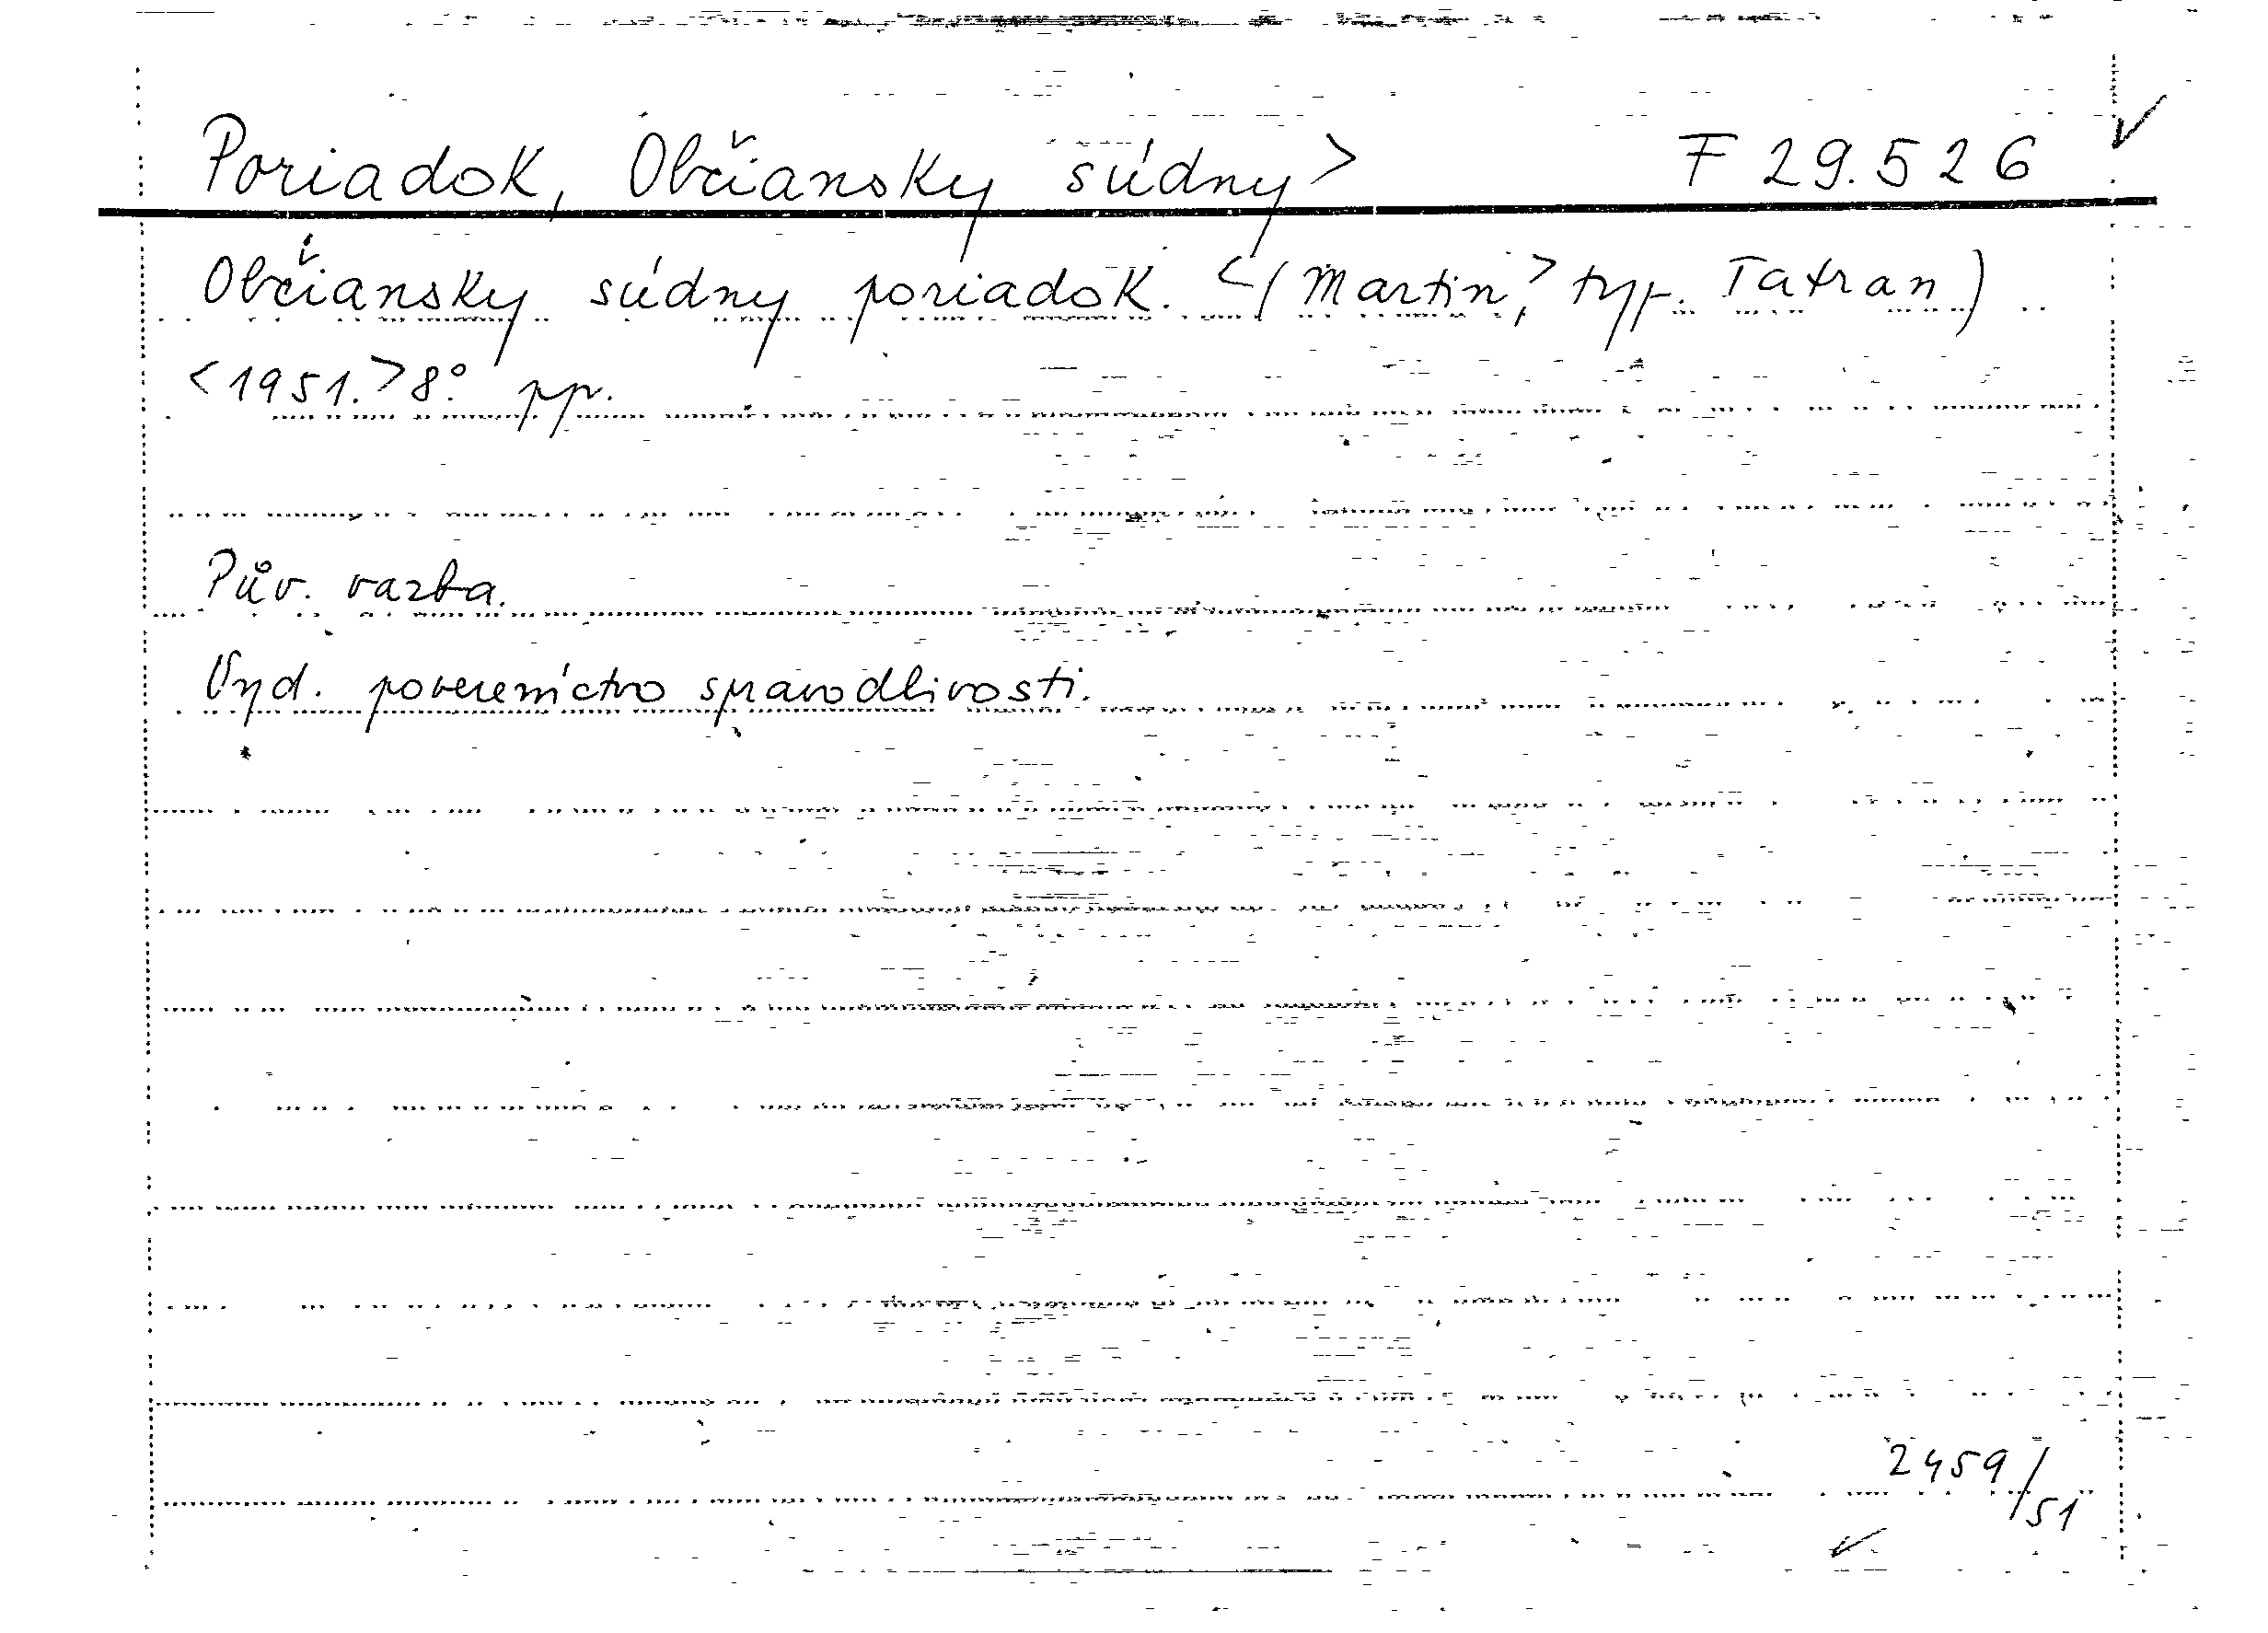 Poriadok, Občiansky súdny> F 29.526 ✓
Občiansky súdny poriadok. <(Martin,> typ. Tatran)
<1951.> 8° pp.
Pův. vazba.
Vyd. povereníctvo spravodlivosti.
2459/51